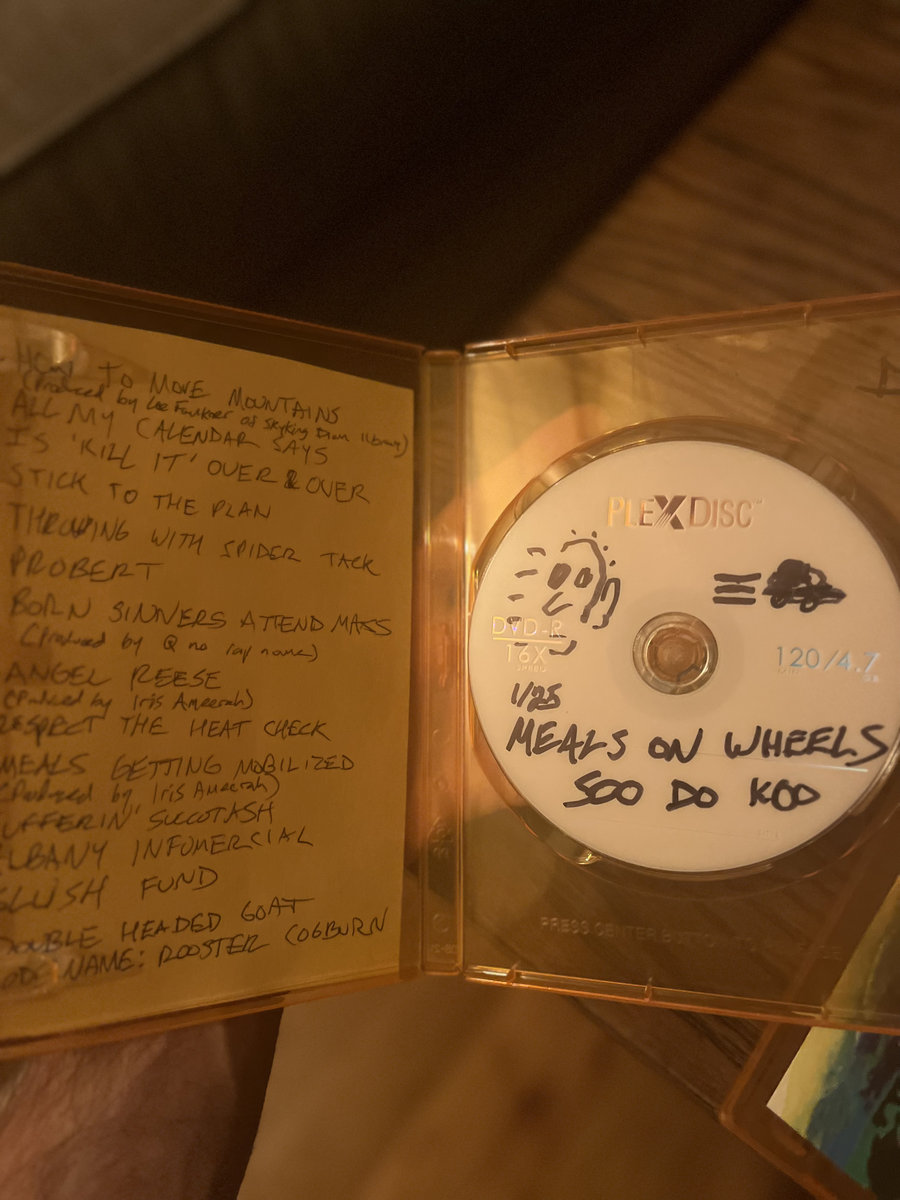 HOW TO MOVE MOUNTAINS
(Produced by Lee Faulkner of Skyking Drum library)
ALL MY CALENDAR SAYS
IS 'KILL IT' OVER & OVER
STICK TO THE PLAN
THROWING WITH SPIDER TACK
PROBERT
BORN SINNERS ATTEND MASS
(Produced by Q no rap name)
ANGEL REESE
(Produced by Iris Ameerah)
RESPECT THE HEAT CHECK
MEALS GETTING MOBILIZED
(Produced by Iris Ameerah)
UFFERIN' SUCCOTASH
LBANY INFOMERCIAL
SLUSH FUND
DOUBLE HEADED GOAT
ODE NAME: ROOSTER COGBURN
PLEXDISC
DVD-R
16X
120/4.7
1/25
MEALS ON WHEELS
SOO DO KOO
PRESS CENTER